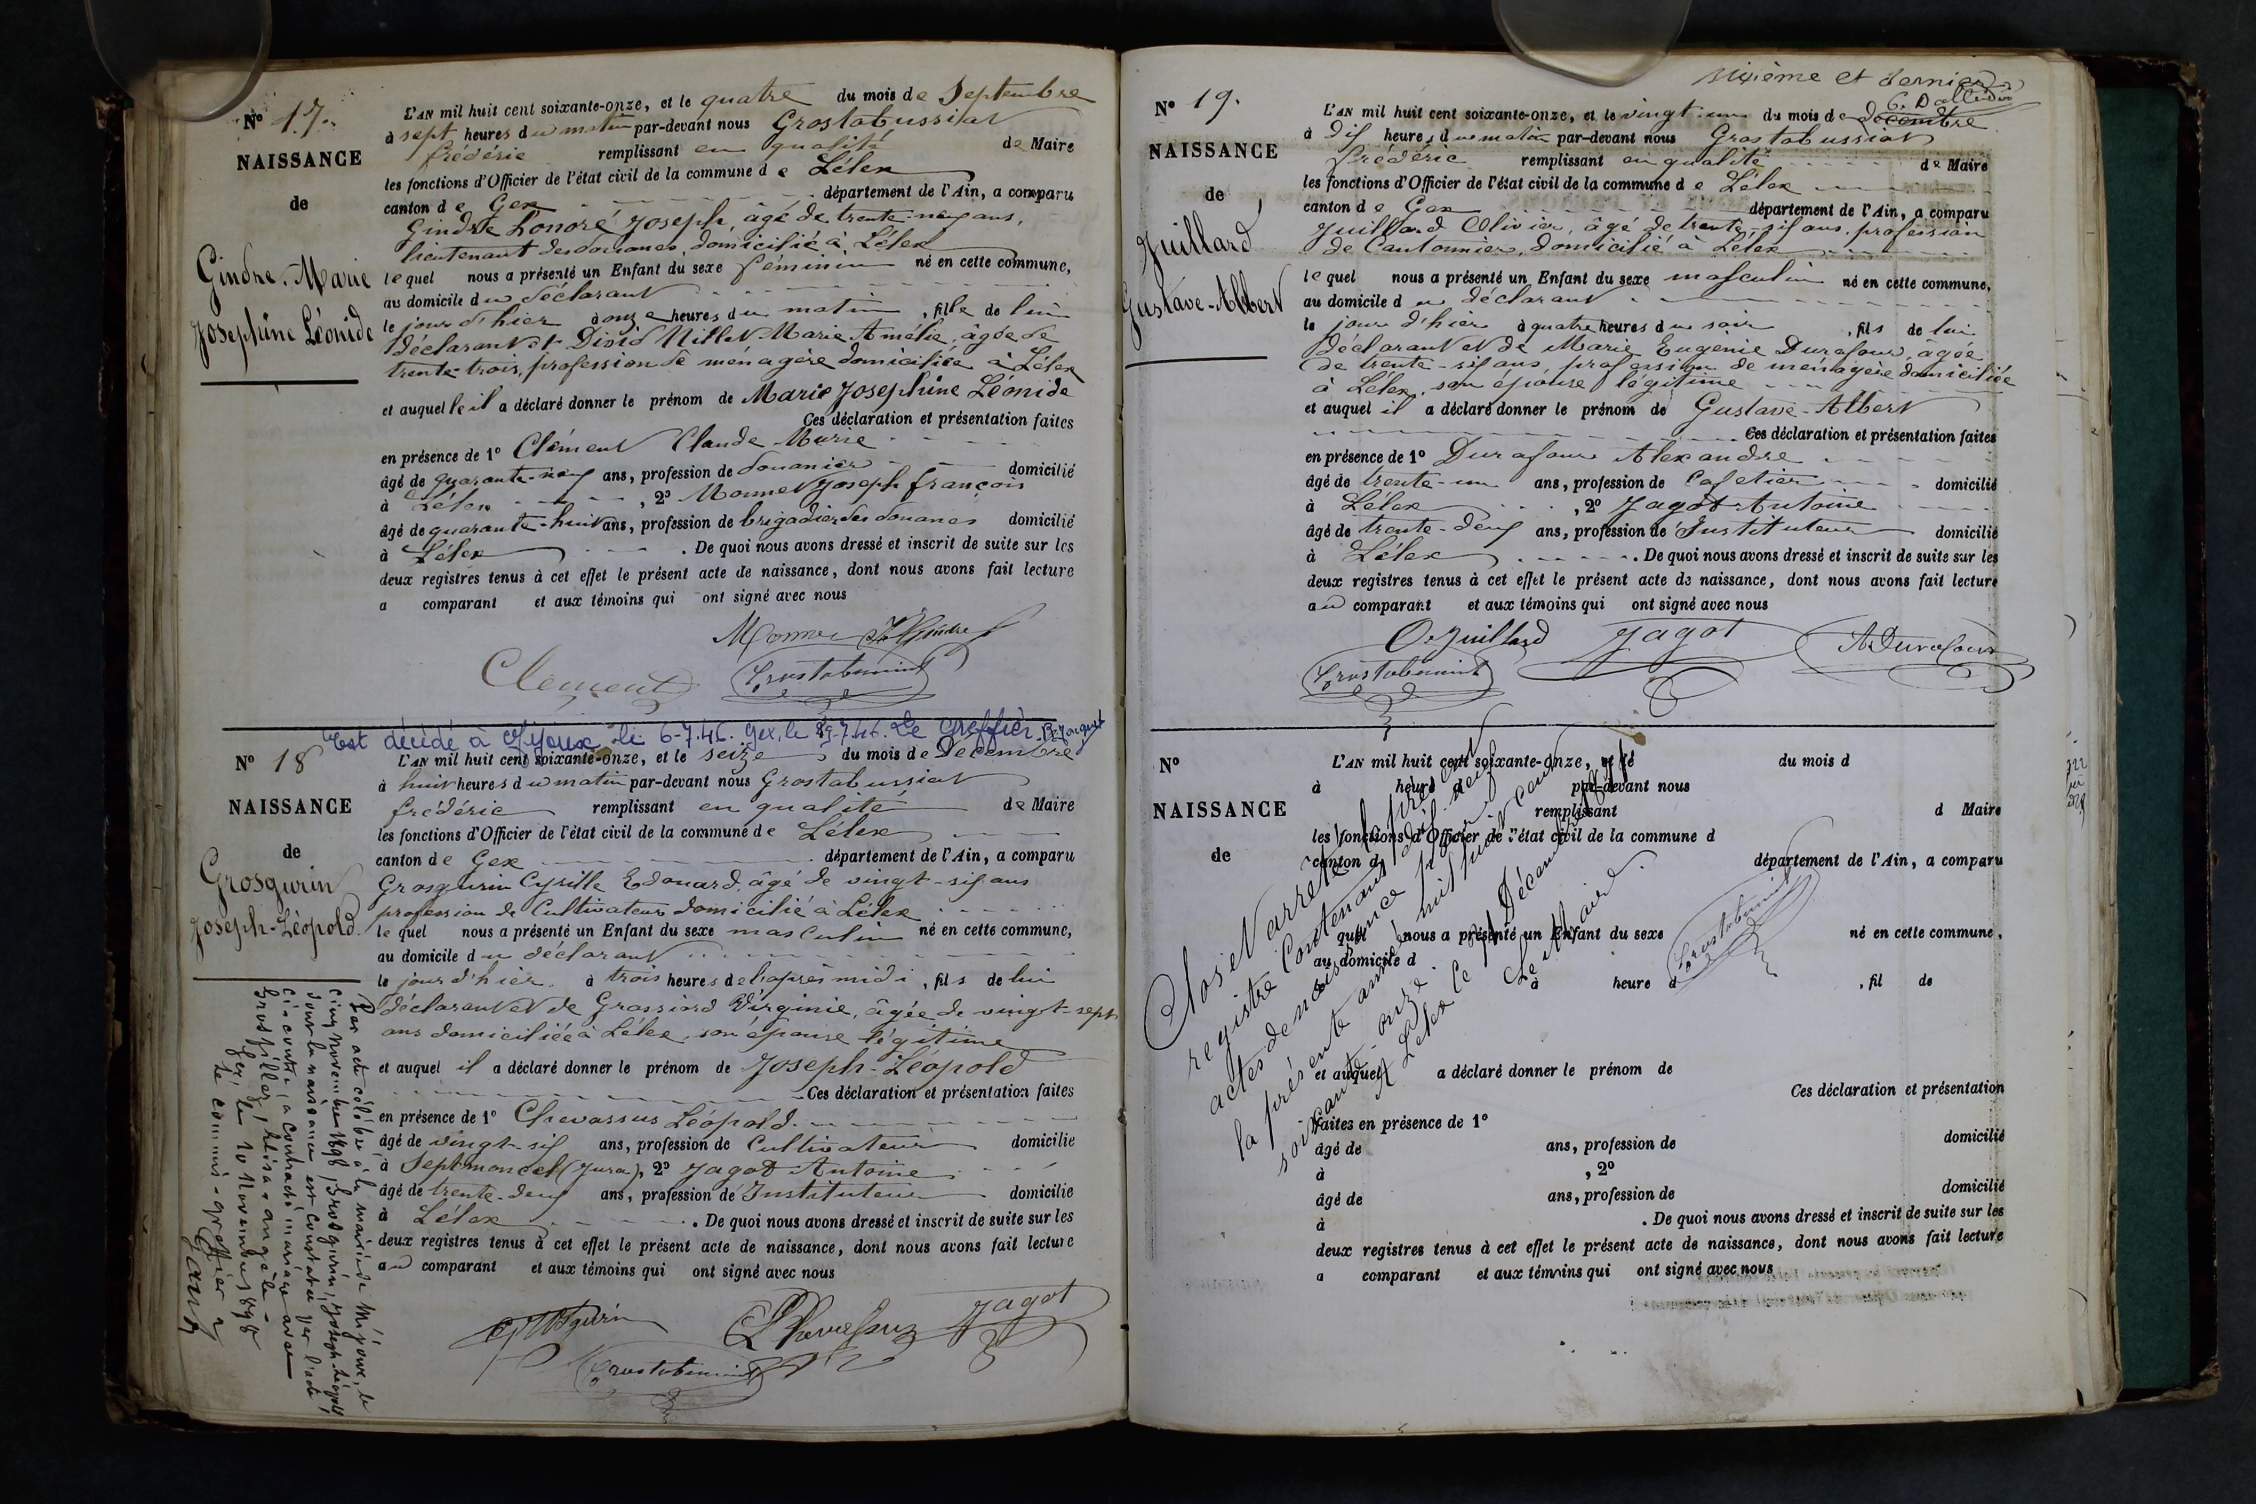 N° 17.
NAISSANCE
de
Gindre. Marie
Josephine Léonide
L'AN mil huit cent soixante-onze, et le quatre du mois de Septembre
à sept heures du matin par-devant nous Grostabussiat
frédéric remplissant en qualité de Maire
les fonctions d'Officier de l'état civil de la commune de Lélex
canton de Gex département de l'Ain, a comparu
Gindre honoré Joseph, âgé de trente-neuf ans,
lieutenant des douanes, domicilié à Lélex
lequel nous a présenté un Enfant du sexe féminin né en cette commune,
au domicile du déclarant
le jour d'hier à onze heures du matin, fille de lui
déclarant et Millet Marie Amélie, âgée de
trente-trois, profession de ménagère domiciliée à Lélex
et auquel il a déclaré donner le prénom de Marie Josephine Léonide
Ces déclaration et présentation faites
en présence de 1° Clément Claude Marie
âgé de quarante-neuf ans, profession de douanier domicilié
à Lélex, 2° Monnet Joseph françois
âgé de quarante-huit ans, profession de brigadier des douanes domicilié
à Lélex. De quoi nous avons dressé et inscrit de suite sur les
deux registres tenus à cet effet le présent acte de naissance, dont nous avons fait lecture
a comparant et aux témoins qui ont signé avec nous
Clement
Est décédé à Mijoux le 6-7.46. Gex, le 29-7.46. Le Greffier.
N° 18
NAISSANCE
de
Grosgurin
Joseph-Léopold.
L'AN mil huit cent soixante-onze, et le seize du mois de Décembre
à huit heures du matin par-devant nous Grostabussiat
frédéric remplissant en qualité de Maire
les fonctions d'Officier de l'état civil de la commune de Lélex
canton de Gex département de l'Ain, a comparu
Grosgurin Cyrille Edouard, âgé de vingt-six ans
profession de Cultivateur domicilié à Lélex
lequel nous a présenté un Enfant du sexe masculin né en cette commune,
au domicile du déclarant
le jour d'hier. à trois heures de l'après midi, fils de lui
déclarant et de Grossiord Virginie, âgée de vingt-sept
ans domiciliée à Lélex, son épouse légitime
et auquel il a déclaré donner le prénom de Joseph-Léopold
Ces déclaration et présentation faites
en présence de 1° Chevassus Léopold.
âgé de vingt-six ans, profession de Cultivateur domicilié
à Septmoncel (Jura), 2° Jagot Antoine
âgé de trente-deux ans, profession de Instituteur domicilié
à Lélex. De quoi nous avons dressé et inscrit de suite sur les
deux registres tenus à cet effet le présent acte de naissance, dont nous avons fait lecture
au comparant et aux témoins qui ont signé avec nous
Jagot
Par acte célébré à la mairie de Mijoux, le
cinq Novembre 1898, Grosgurin, Joseph Léopold,
dont la naissance est constatée par l'acte
ci-contre, a contracté mariage avec
Grospiller, Elisa-angèle.
Gex, le 10 Novembre 1898
Le commis-greffier
sixième et dernier
N° 19.
NAISSANCE
de
Juillard
Gustave-Albert
L'AN mil huit cent soixante-onze, et le vingt-un du mois de décembre
à dix heures du matin par-devant nous Grostabussiat
frédéric remplissant en qualité de Maire
les fonctions d'Officier de l'état civil de la commune de Lélex
canton de Gex département de l'Ain, a comparu
Juillard Olivier, âgé de trente-six ans, profession
de Cantonnier, domicilié à Lélex
lequel nous a présenté un Enfant du sexe masculin né en cette commune,
au domicile du déclarant
le jour d'hier à quatre heures du soir, fils de lui
déclarant et de Marie Eugénie Durafour, âgée
de trente-six ans, profession de ménagère domiciliée
à Lélex, son épouse légitime
et auquel il a déclaré donner le prénom de Gustave-Albert
Ces déclaration et présentation faites
en présence de 1° Durafour Alexandre
âgé de trente-un ans, profession de Cafetier domicilié
à Lélex, 2° Jagot Antoine
âgé de trente-deux ans, profession de Instituteur domicilié
à Lélex. De quoi nous avons dressé et inscrit de suite sur les
deux registres tenus à cet effet le présent acte de naissance, dont nous avons fait lecture
au comparant et aux témoins qui ont signé avec nous
O. Juillard Jagot A Durafour
N°
NAISSANCE
de
L'AN mil huit cent soixante-onze, et le du mois d
à heure d par-devant nous
remplissant d Maire
les fonctions d'Officier de l'état civil de la commune d
canton d département de l'Ain, a comparu
quel nous a présenté un Enfant du sexe né en cette commune,
au domicile d
le à heure d, fil de
et auquel a déclaré donner le prénom de
Ces déclaration et présentation
faites en présence de 1°
âgé de ans, profession de domicilié
à, 2°
âgé de ans, profession de domicilié
à. De quoi nous avons dressé et inscrit de suite sur les
deux registres tenus à cet effet le présent acte de naissance, dont nous avons fait lecture
a comparant et aux témoins qui ont signé avec nous
Clos et arrêté le présent
registre Contenant dix-neuf
actes de naissance pour
la présente année mil huit cent
soixante-onze.
A Lélex le Décembre 1871
Le Maire.